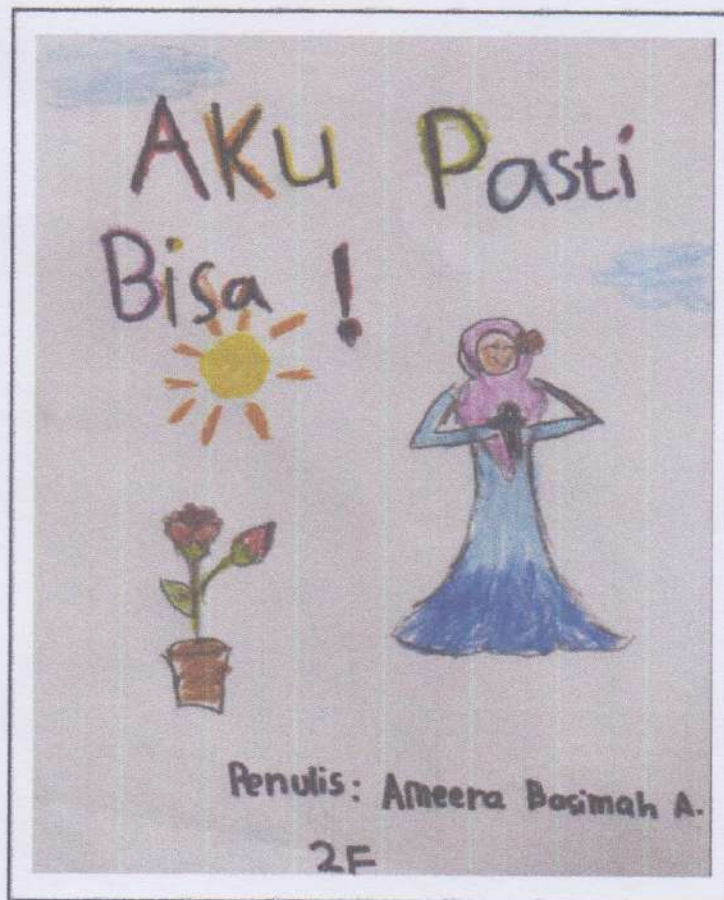 AKu Pasti
Bisa !
Penulis: Ameera Basimah A.
2F